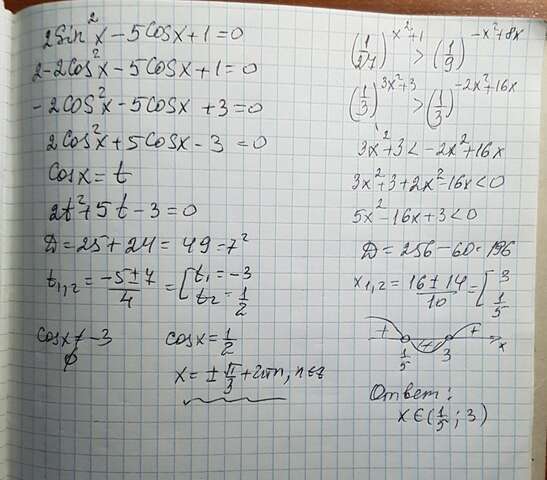 2Sin²x − 5Cosx + 1 = 0
2 − 2Cos²x − 5Cosx + 1 = 0
− 2Cos²x − 5Cosx + 3 = 0
2Cos²x + 5Cosx − 3 = 0
Cosx = t
2t² + 5t − 3 = 0
D = 25 + 24 = 49 = 7²
t₁,₂ = (−5 ± 7)/4 = [t₁ = −3; t₂ = 1/2
Cosx ≠ −3
∅
Cosx = 1/2
x = ± π/3 + 2πn, n∈z
(1/27)^(x²+1) > (1/9)^(−x²+8x)
(1/3)^(3x²+3) > (1/3)^(−2x²+16x)
3x² + 3 < −2x² + 16x
3x² + 3 + 2x² − 16x < 0
5x² − 16x + 3 < 0
D = 256 − 60 = 196
x₁,₂ = (16 ± 14)/10 = [3; 1/5
+ − +
1/5 3 x
Ответ:
x∈(1/5; 3)